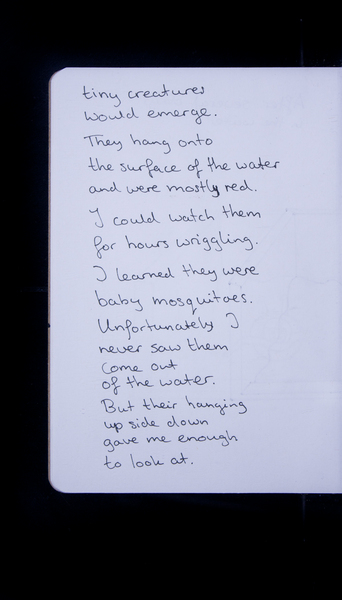 tiny creatures
would emerge.
They hang onto
the surface of the water
and were mostly red.
I could watch them
for hours wriggling.
I learned they were
baby mosquitoes.
Unfortunately I
never saw them
come out
of the water.
But their hanging
up side down
gave me enough
to look at.